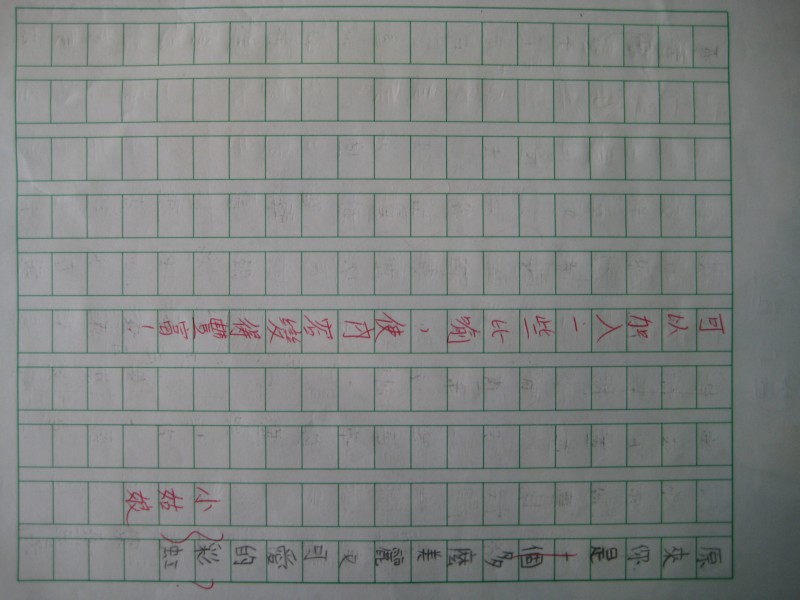 原來你是一個多麼美麗又可愛的彩虹
小姑娘
可以加入一些比喻，使內容變得豐富！